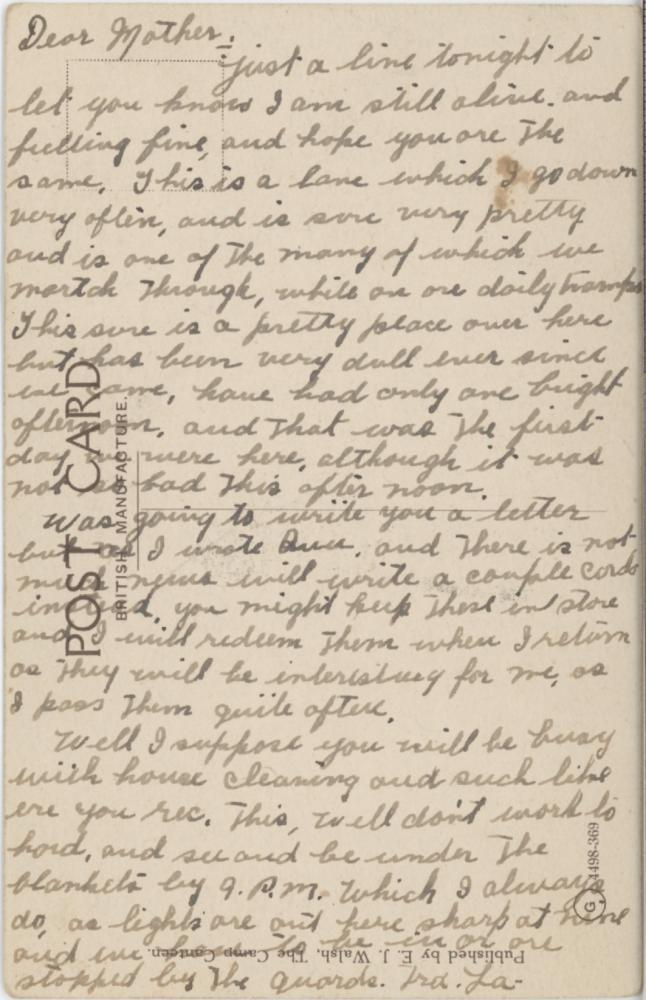 Dear Mother.
Just a line tonight to
let you know I am still alive. and
feelling fine, and hope you are the
same. This is a lane which I go down
very often, and is sure very pretty
and is one of the many of which we
martch through, while on ore daily tramps
This sure is a pretty place over here
but has been very dull ever since
we came, have had only one bright
afternoon, and that was the first
day we were here, although it was
not so bad this after noon.
Was going to write you a letter
but as I wrote and there is not
much news will write a couple cords
instead, you might keep these in store
and I will redeem them when I return
as they will be interistueg for me, as
I pass them quite often.
Well I suppose you will be busy
with house cleaning and such like
ere you rec. this, well don't work to
hard, and see and be under the
blankets by 9. P.M. which I always
do, as lights are out here sharp at nine
and we have to be in or are
stopped by the guards. Trd. La-
POST CARD
BRITISH MANUFACTURE.
G. 4498-369
Published by E. J. Walsh, The Camp Canteen.